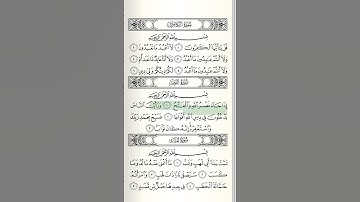 سُورَةُ الكَافِرُونَ
بِسْمِ اللَّهِ الرَّحْمَٰنِ الرَّحِيمِ
قُلْ يَا أَيُّهَا الْكَافِرُونَ ١ لَا أَعْبُدُ مَا تَعْبُدُونَ ٢
وَلَا أَنتُمْ عَابِدُونَ مَا أَعْبُدُ ٣ وَلَا أَنَا عَابِدٌ مَّا عَبَدتُّمْ ٤
وَلَا أَنتُمْ عَابِدُونَ مَا أَعْبُدُ ٥ لَكُمْ دِينُكُمْ وَلِيَ دِينِ ٦
سُورَةُ النَّصْرِ
بِسْمِ اللَّهِ الرَّحْمَٰنِ الرَّحِيمِ
إِذَا جَاءَ نَصْرُ اللَّهِ وَالْفَتْحُ ١ وَرَأَيْتَ النَّاسَ
يَدْخُلُونَ فِي دِينِ اللَّهِ أَفْوَاجًا ٢ فَسَبِّحْ بِحَمْدِ رَبِّكَ
وَاسْتَغْفِرْهُ إِنَّهُ كَانَ تَوَّابًا ٣
سُورَةُ المَسَدِ
بِسْمِ اللَّهِ الرَّحْمَٰنِ الرَّحِيمِ
تَبَّتْ يَدَا أَبِي لَهَبٍ وَتَبَّ ١ مَا أَغْنَىٰ عَنْهُ مَالُهُ وَمَا
كَسَبَ ٢ سَيَصْلَىٰ نَارًا ذَاتَ لَهَبٍ ٣ وَامْرَأَتُهُ
حَمَّالَةَ الْحَطَبِ ٤ فِي جِيدِهَا حَبْلٌ مِّن مَّسَدٍ ٥